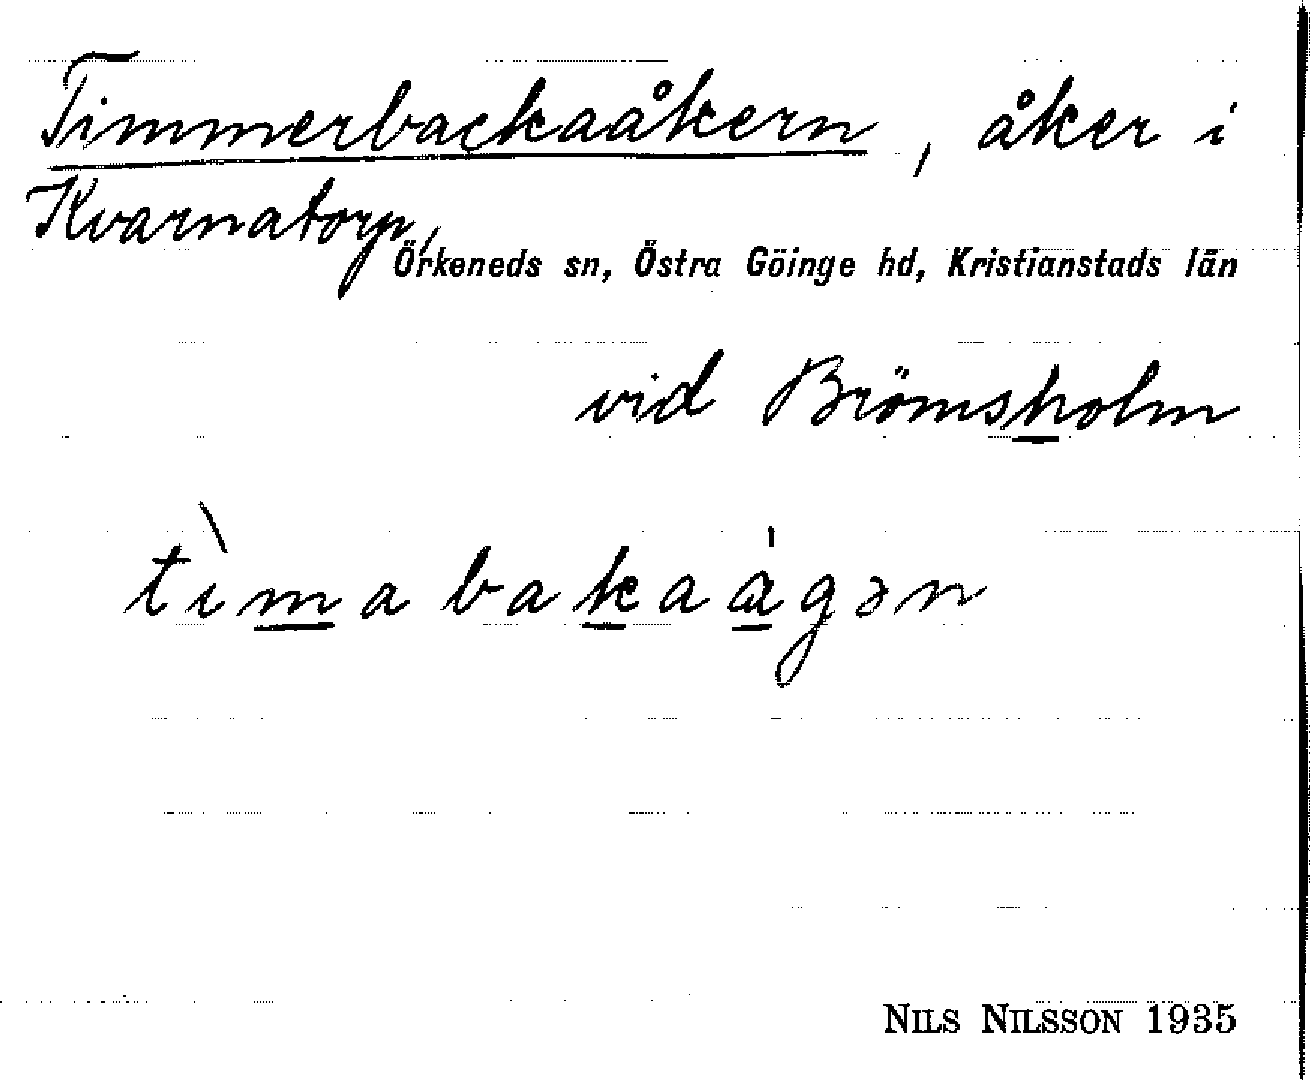 Timmerbackaåkern, åker i
Kvarnatorp,
Örkeneds sn, Östra Göinge hd, Kristianstads län
vid Brömsholm
tìmabakaágən
NILS NILSSON 1935